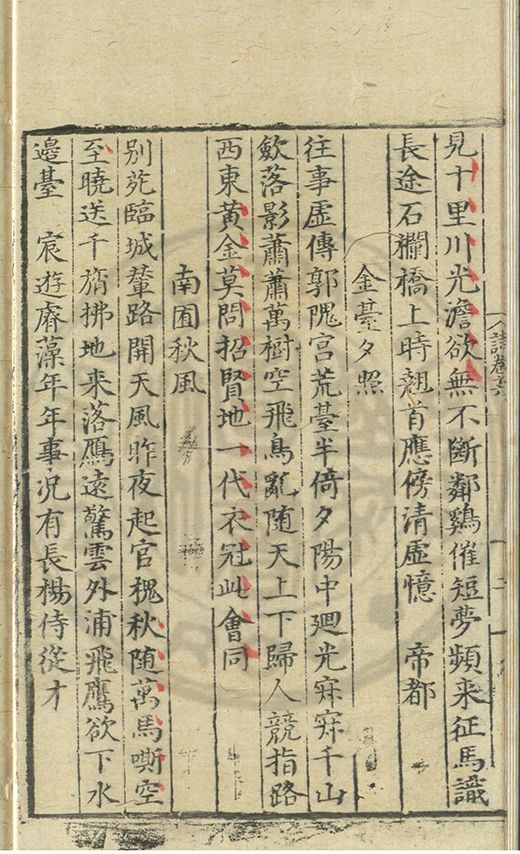 見十里川光澹欲無不斷鄰鷄催短夢頻来征馬識
長途石欄橋上時翹首應傍清虛憶　帝都
金臺夕照
往事虛傳郭隗宮荒臺半倚夕陽中廻光寂寂千山
歛落影蕭蕭萬樹空飛鳥亂随天上下歸人競指路
西東黄金莫問招賢地一代衣冠此會同
南囿秋風
别苑臨城輦路開天風昨夜起宫槐秋随萬馬嘶空
至曉送千旂拂地来落鴈遠驚雲外浦飛鷹欲下水
邉臺　宸遊睿藻年年事况有長楊侍從才
詩卷六